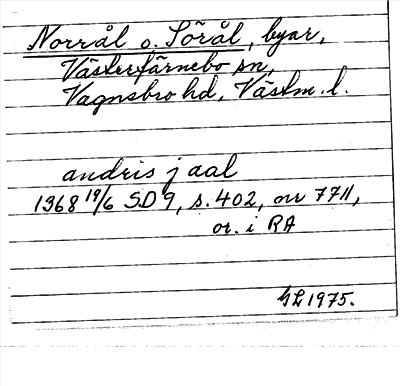 Norrål o. Sörål, byar,
Västerfärnebo sn,
Vagnsbro hd, Västm. l.
andris j aal
1368 19/6 SD 9, s. 402, nr 7711,
or. i RA
GL 1975.